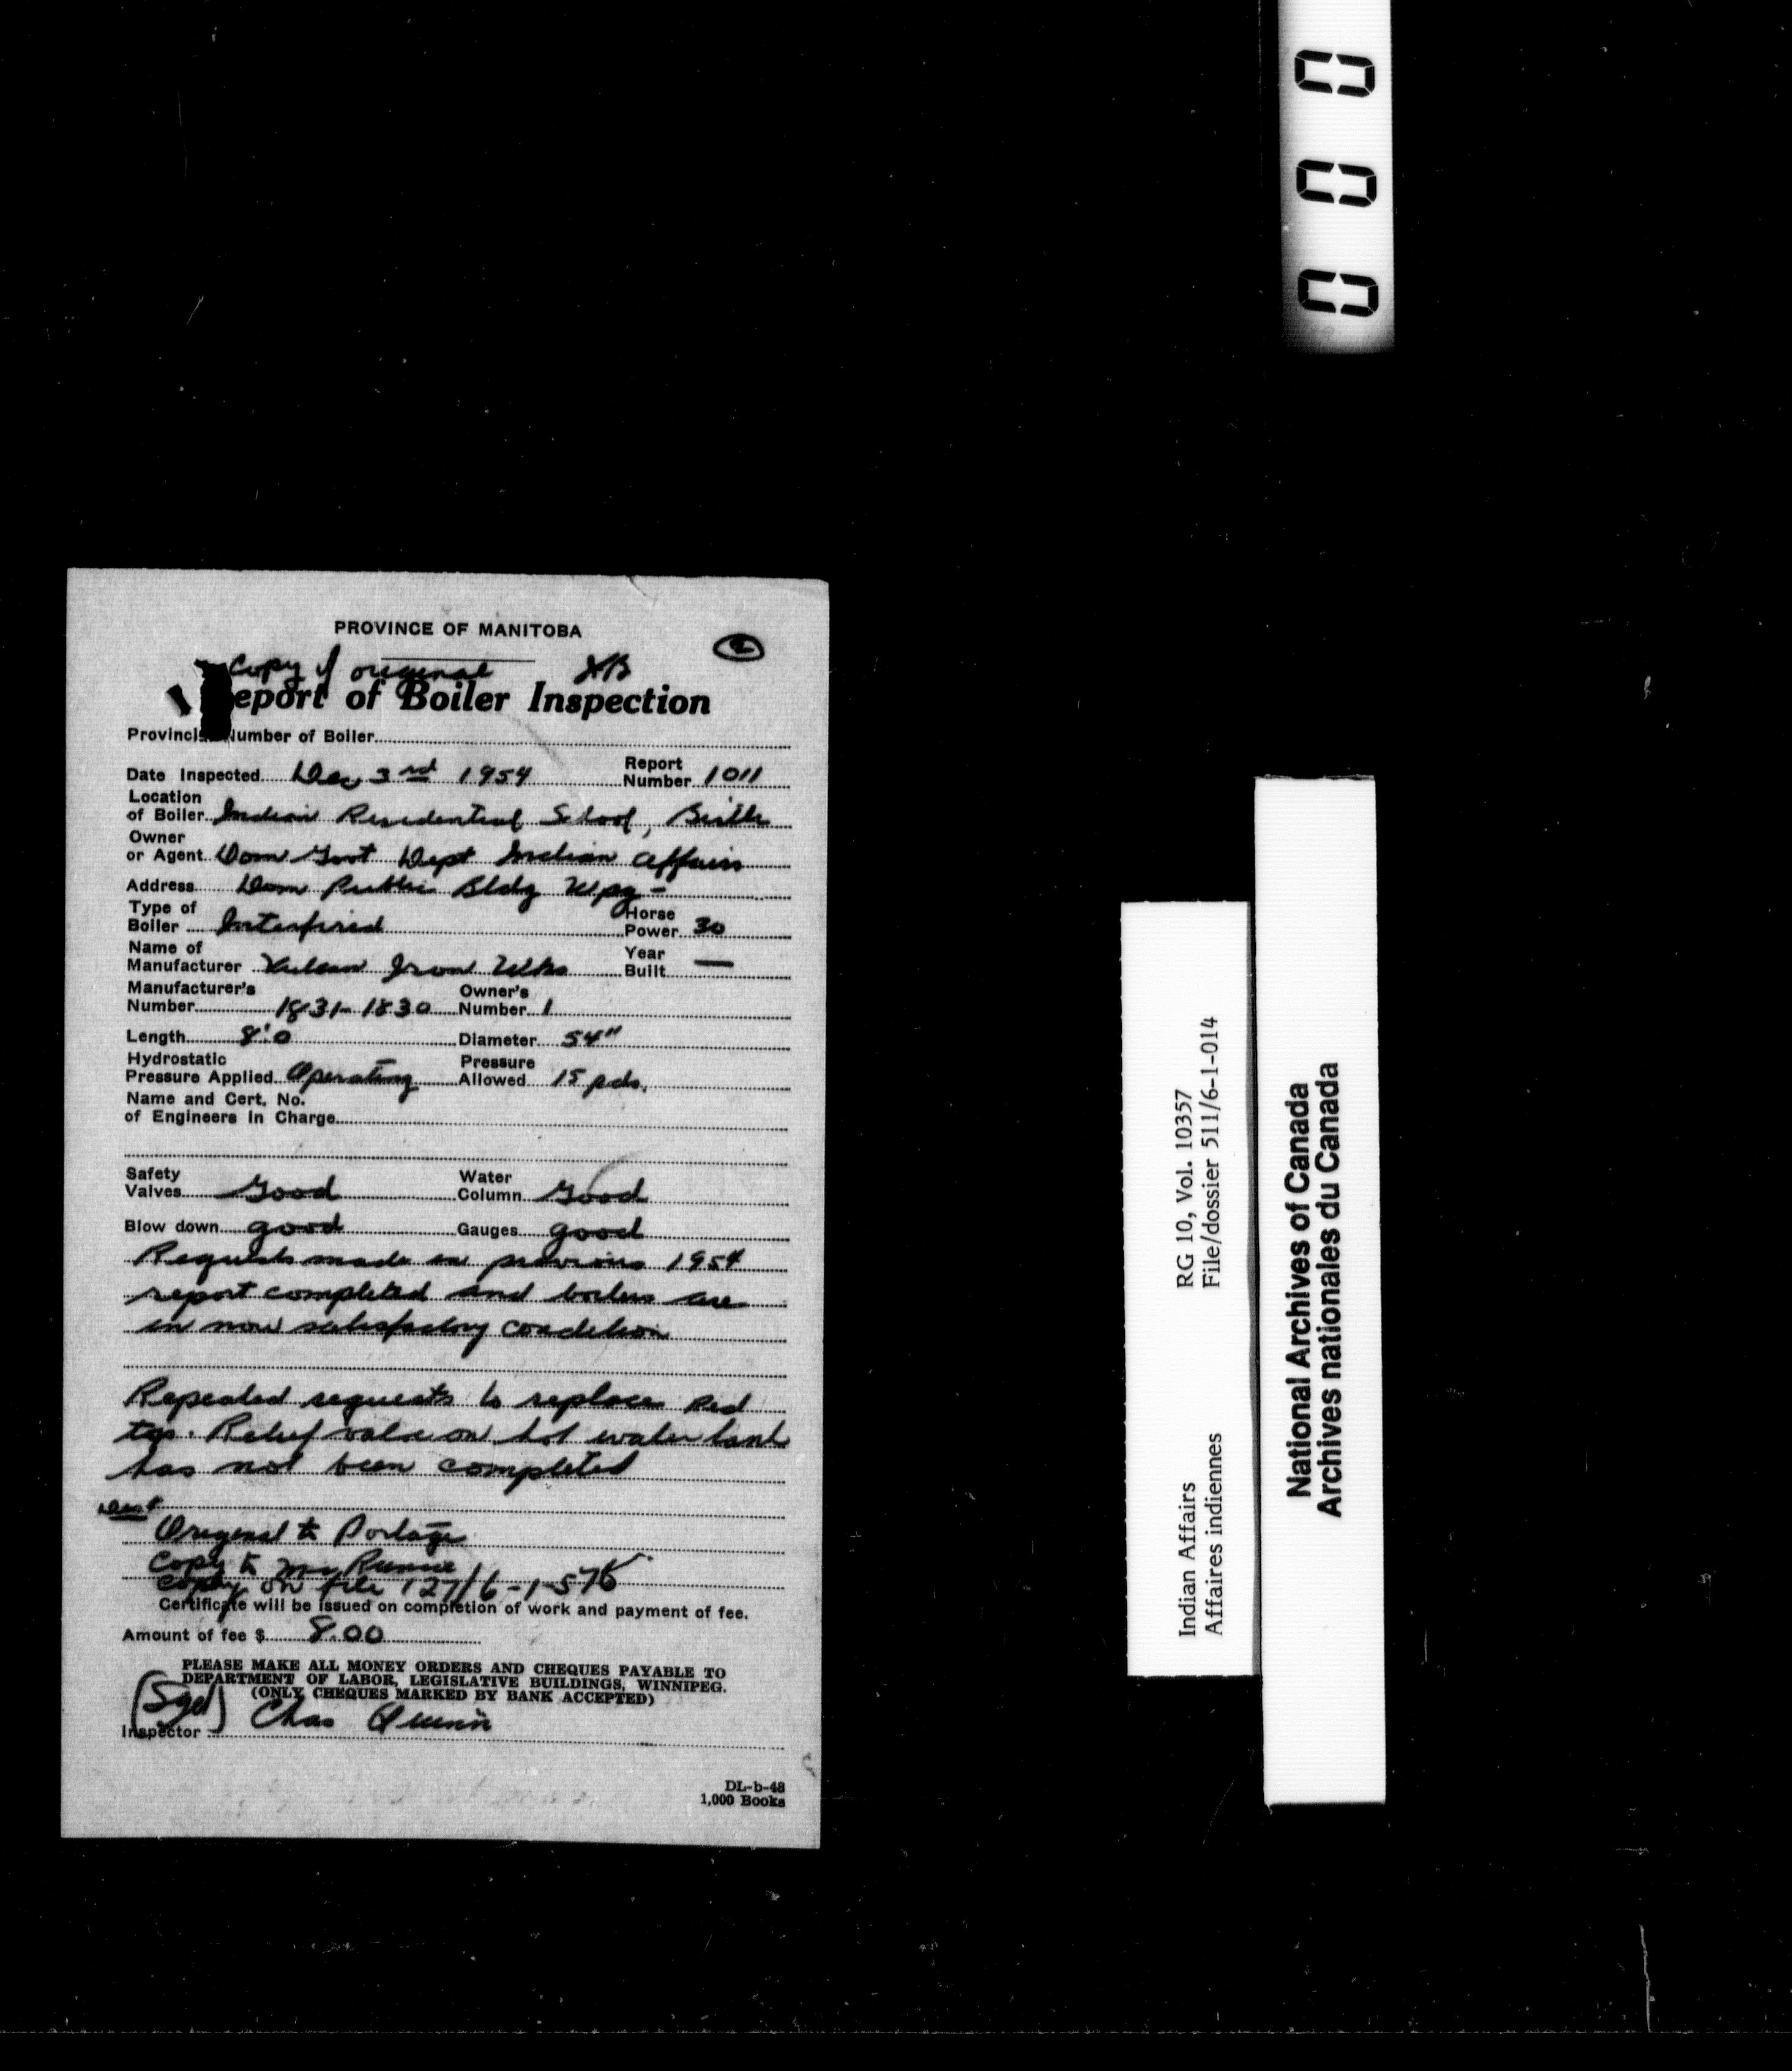 PROVINCE OF MANITOBA
2
Copy of original
eport of Boiler Inspection
Provincial Number of Boiler
Date Inspected Dec 3rd 1954 Report Number 1011
Location of Boiler Indian Residential School, Birtle
Owner or Agent Dom Govt Dept Indian Affairs
Address Dom Public Bldg Wpg -
Type of Boiler Interfired Horse Power 30
Name of Manufacturer Vulcan Iron Wks Year Built —
Manufacturer's Number 1831-1830 Owner's Number 1
Length 8'0 Diameter 54"
Hydrostatic Pressure Applied Operating Pressure Allowed 15 pds.
Name and Cert. No. of Engineers In Charge
Safety Valves Good Water Column Good
Blow down good Gauges good
Requests made in previous 1954
report completed and boilers are
in now satisfactory condition
Repeated requests to replace Red
top. Relief valve on hot water tank
has not been completed
Original to Portage
Copy to
copy on file 127/6-1-576
Certificate will be issued on completion of work and payment of fee.
Amount of fee $ 8.00
PLEASE MAKE ALL MONEY ORDERS AND CHEQUES PAYABLE TO
DEPARTMENT OF LABOR, LEGISLATIVE BUILDINGS, WINNIPEG.
(ONLY CHEQUES MARKED BY BANK ACCEPTED)
Inspector (Sgd) Chas Quinn
DL-b-48
1,000 Books
000
Indian Affairs RG 10, Vol. 10357
Affaires indiennes File/dossier 511/6-1-014
National Archives of Canada
Archives nationales du Canada